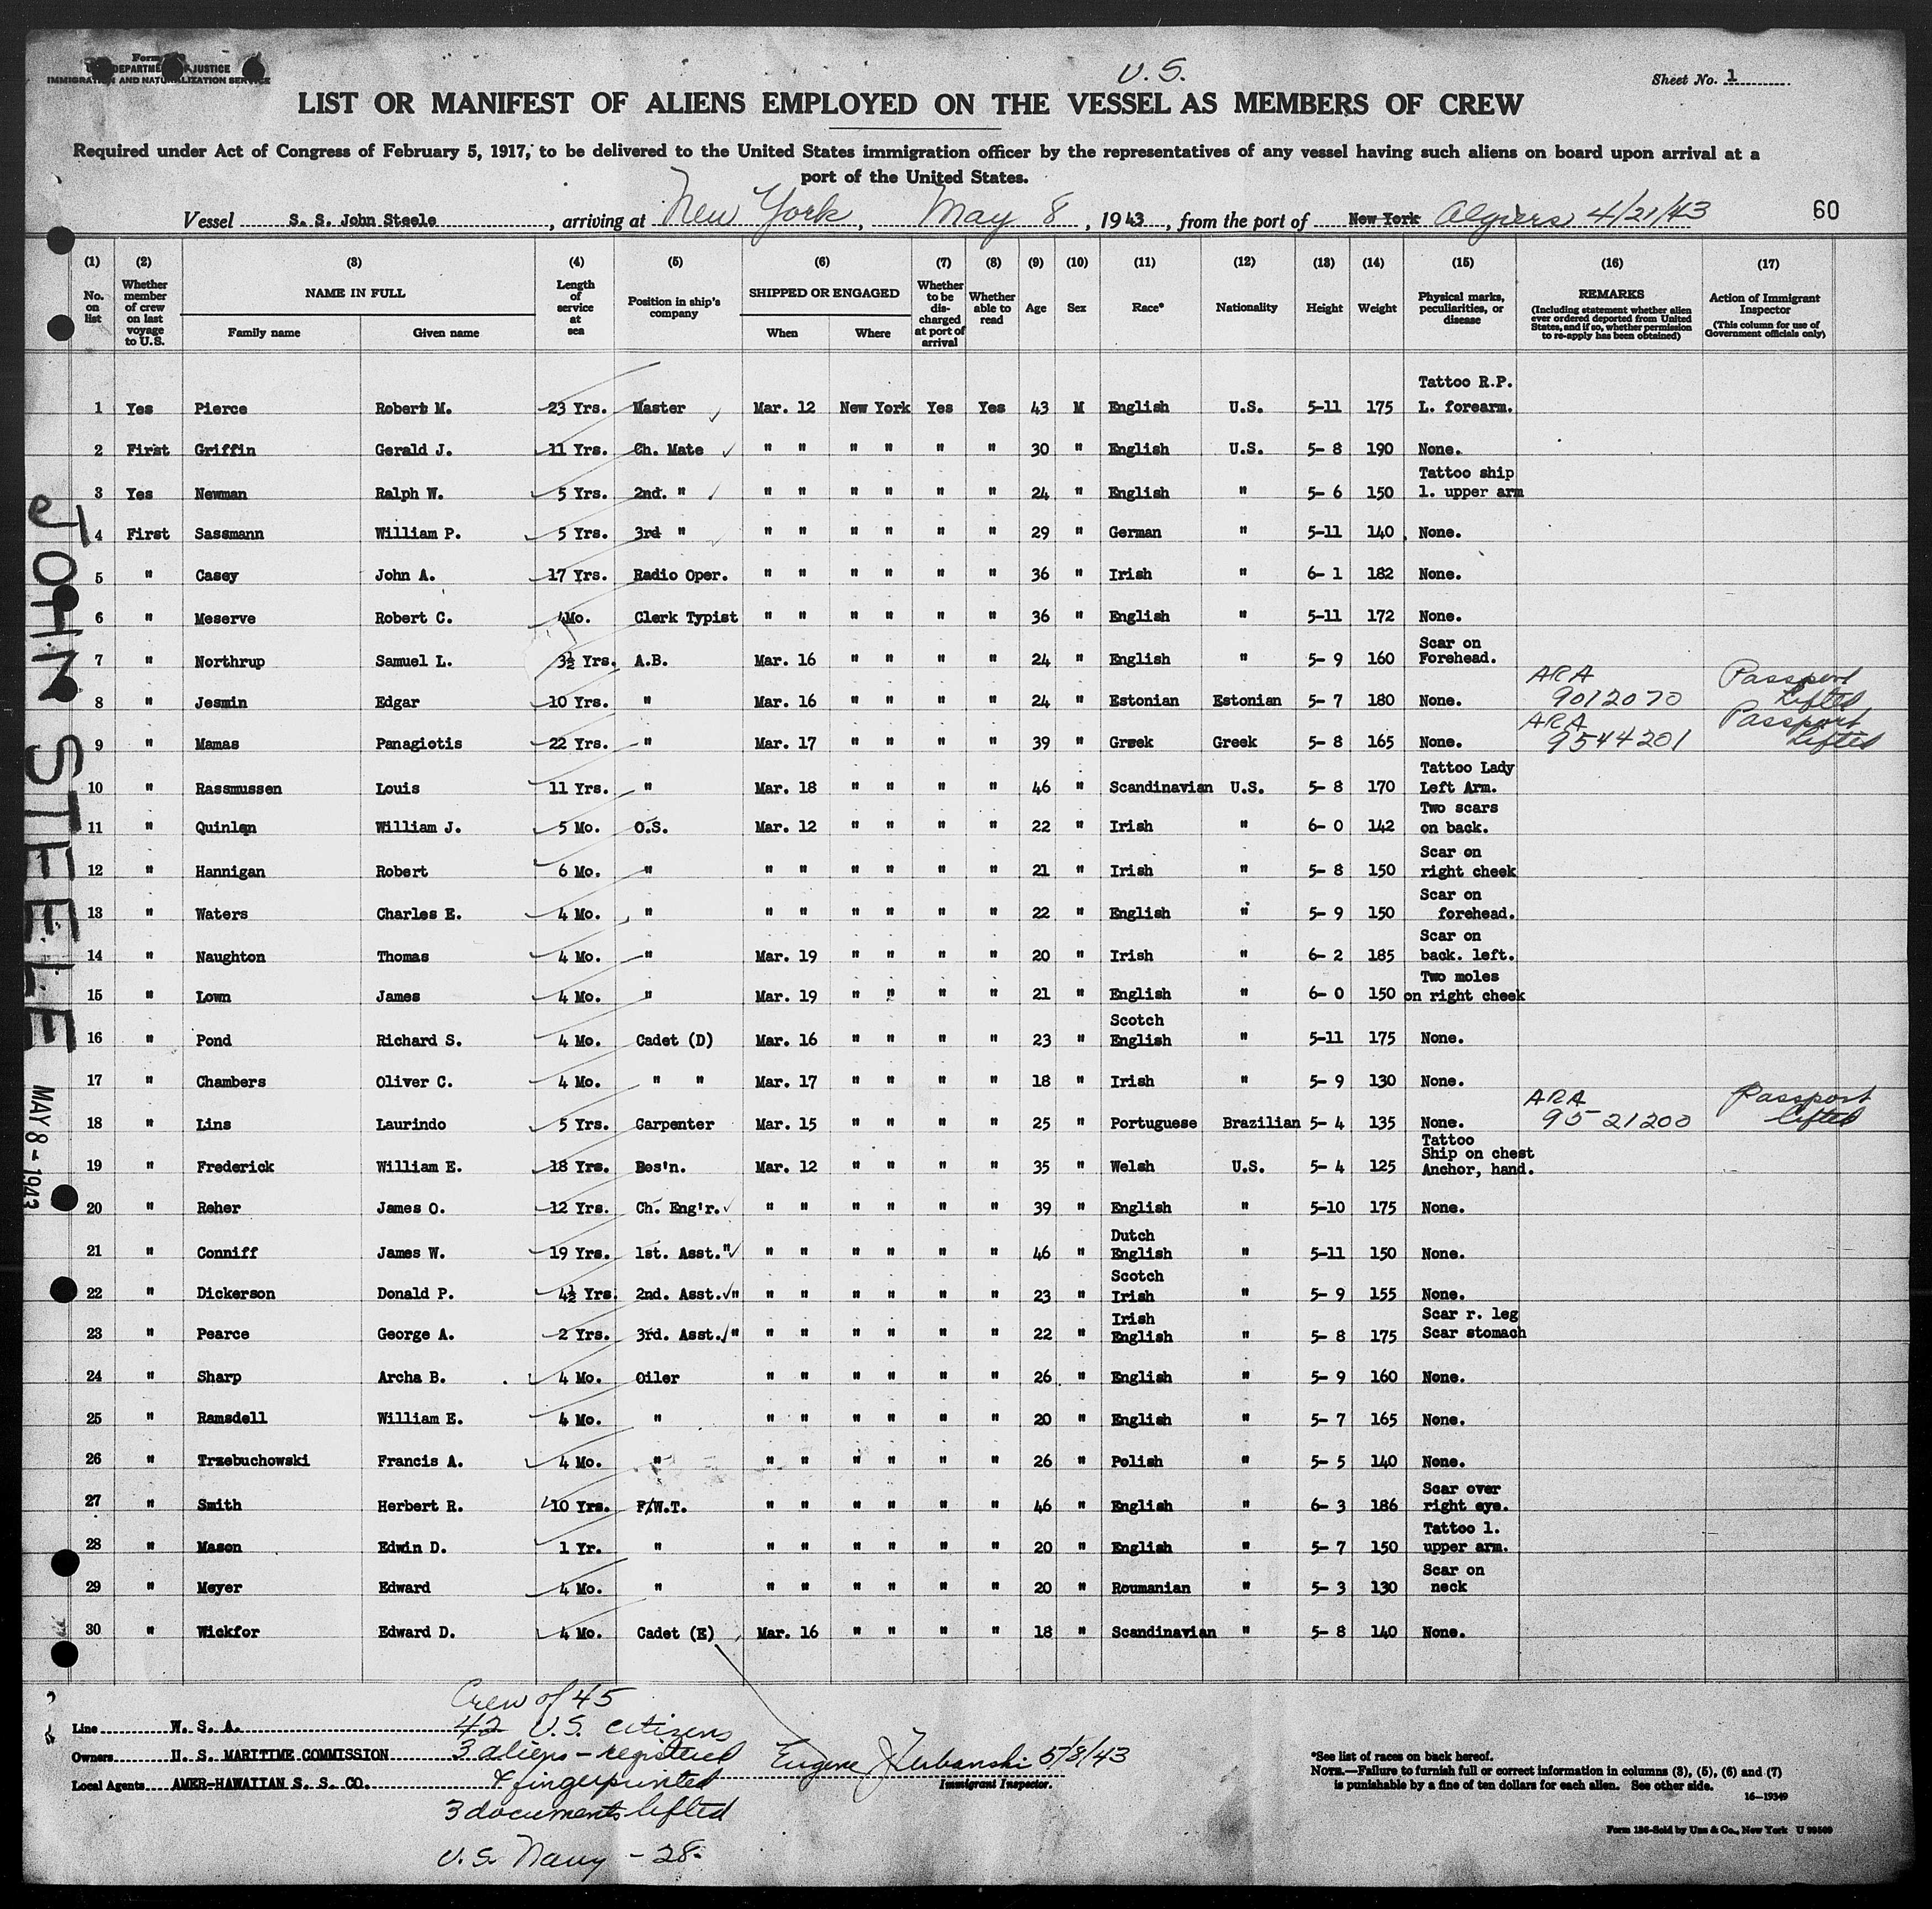 U. S.
Sheet No. 1
DEPARTMENT OF JUSTICE
IMMIGRATION AND NATURALIZATION SERVICE
LIST OR MANIFEST OF ALIENS EMPLOYED ON THE VESSEL AS MEMBERS OF CREW
Required under Act of Congress of February 5, 1917, to be delivered to the United States immigration officer by the representatives of any vessel having such aliens on board upon arrival at a
port of the United States.
Vessel S. S. John Steele, arriving at New York, May 8, 1943, from the port of New York Algiers 4/21/43 60
(1) (2) (3) (4) (5) (6) (7) (8) (9) (10) (11) (12) (13) (14) (15) (16) (17)
No. on list
Whether member of crew on last voyage to U.S.
NAME IN FULL
Family name Given name
Length of service at sea
Position in ship's company
SHIPPED OR ENGAGED
When Where
Whether to be discharged at port of arrival
Whether able to read
Age
Sex
Race*
Nationality
Height
Weight
Physical marks, peculiarities, or disease
REMARKS
(Including statement whether alien ever ordered deported from United States, and if so, whether permission to re-apply has been obtained)
Action of Immigrant Inspector
(This column for use of Government officials only)
1 Yes Pierce Robert M. 23 Yrs. Master Mar. 12 New York Yes Yes 43 M English U.S. 5-11 175 Tattoo R.P. L. forearm.
2 First Griffin Gerald J. 11 Yrs. Ch. Mate " " " " " " 30 " English U.S. 5- 8 190 None.
3 Yes Newman Ralph W. 5 Yrs. 2nd. " " " " " " " 24 " English " 5- 6 150 Tattoo ship l. upper arm
4 First Sassmann William P. 5 Yrs. 3rd " " " " " " " 29 " German " 5-11 140 None.
5 " Casey John A. 17 Yrs. Radio Oper. " " " " " " 36 " Irish " 6- 1 182 None.
6 " Meserve Robert C. 4Mo. Clerk Typist " " " " " " 36 " English " 5-11 172 None.
7 " Northrup Samuel L. 3½ Yrs. A.B. Mar. 16 " " " " 24 " English " 5- 9 160 Scar on Forehead.
8 " Jesmin Edgar 10 Yrs. " Mar. 16 " " " " 24 " Estonian Estonian 5- 7 180 None. ARA 9012070 Passport Lifted
9 " Mamas Panagiotis 22 Yrs. " Mar. 17 " " " " 39 " Greek Greek 5- 8 165 None. ARA 9544201 Passport Lifted
10 " Rassmussen Louis 11 Yrs. " Mar. 18 " " " " 46 " Scandinavian U.S. 5- 8 170 Tattoo Lady Left Arm.
11 " Quinlan William J. 5 Mo. O.S. Mar. 12 " " " " 22 " Irish " 6- 0 142 Two scars on back.
12 " Hannigan Robert 6 Mo. " " " " " " " 21 " Irish " 5- 8 150 Scar on right cheek
13 " Waters Charles E. 4 Mo. " " " " " " " 22 " English " 5- 9 150 Scar on forehead.
14 " Naughton Thomas 4 Mo. " Mar. 19 " " " " 20 " Irish " 6- 2 185 Scar on back. left.
15 " Lown James 4 Mo. " Mar. 19 " " " " 21 " English " 6- 0 150 Two moles on right cheek
16 " Pond Richard S. 4 Mo. Cadet (D) Mar. 16 " " " " 23 " Scotch English " 5-11 175 None.
17 " Chambers Oliver C. 4 Mo. " " Mar. 17 " " " " 18 " Irish " 5- 9 130 None.
18 " Lins Laurindo 5 Yrs. Carpenter Mar. 15 " " " " 25 " Portuguese Brazilian 5- 4 135 None. ARA 95 21200 Passport lifted
19 " Frederick William E. 18 Yrs. Bos'n. Mar. 12 " " " " 35 " Welsh U.S. 5- 4 125 Tattoo Ship on chest Anchor, hand.
20 " Reher James O. 12 Yrs. Ch. Eng'r. " " " " " " 39 " English " 5-10 175 None.
21 " Conniff James W. 19 Yrs. 1st. Asst." " " " " " " 46 " Dutch English " 5-11 150 None.
22 " Dickerson Donald P. 4½ Yrs. 2nd. Asst. " " " " " " " 23 " Scotch Irish " 5- 9 155 None.
23 " Pearce George A. 2 Yrs. 3rd. Asst. " " " " " " " 22 " Irish English " 5- 8 175 Scar r. leg Scar stomach
24 " Sharp Archa B. 4 Mo. Oiler " " " " " " 26 " English " 5- 9 160 None.
25 " Ramsdell William E. 4 Mo. " " " " " " " 20 " English " 5- 7 165 None.
26 " Trzebuchowski Francis A. 4 Mo. " " " " " " " 26 " Polish " 5- 5 140 None.
27 " Smith Herbert R. 10 Yrs. F/W.T. " " " " " " 46 " English " 6- 3 186 Scar over right eye.
28 " Mason Edwin D. 1 Yr. " " " " " " " 20 " English " 5- 7 150 Tattoo l. upper arm.
29 " Meyer Edward 4 Mo. " " " " " " " 20 " Roumanian " 5- 3 130 Scar on neck
30 " Wickfor Edward D. 4 Mo. Cadet (E) Mar. 16 " " " " 18 " Scandinavian " 5- 8 140 None.
JOHN STEELE
MAY 8 - 1943
Crew of 45
Line W. S. A. 42 U.S. citizens
Owners U. S. MARITIME COMMISSION 3 aliens - registered
Local Agents AMER-HAWAIIAN S. S. CO. & fingerprinted
3 documents lifted
U.S. Navy - 28.
Eugene 5/8/43
Immigrant Inspector.
*See list of races on back hereof.
NOTE.—Failure to furnish full or correct information in columns (3), (5), (6) and (7)
is punishable by a fine of ten dollars for each alien. See other side.
16—19349
Form 136-Sold by Unz & Co., New York